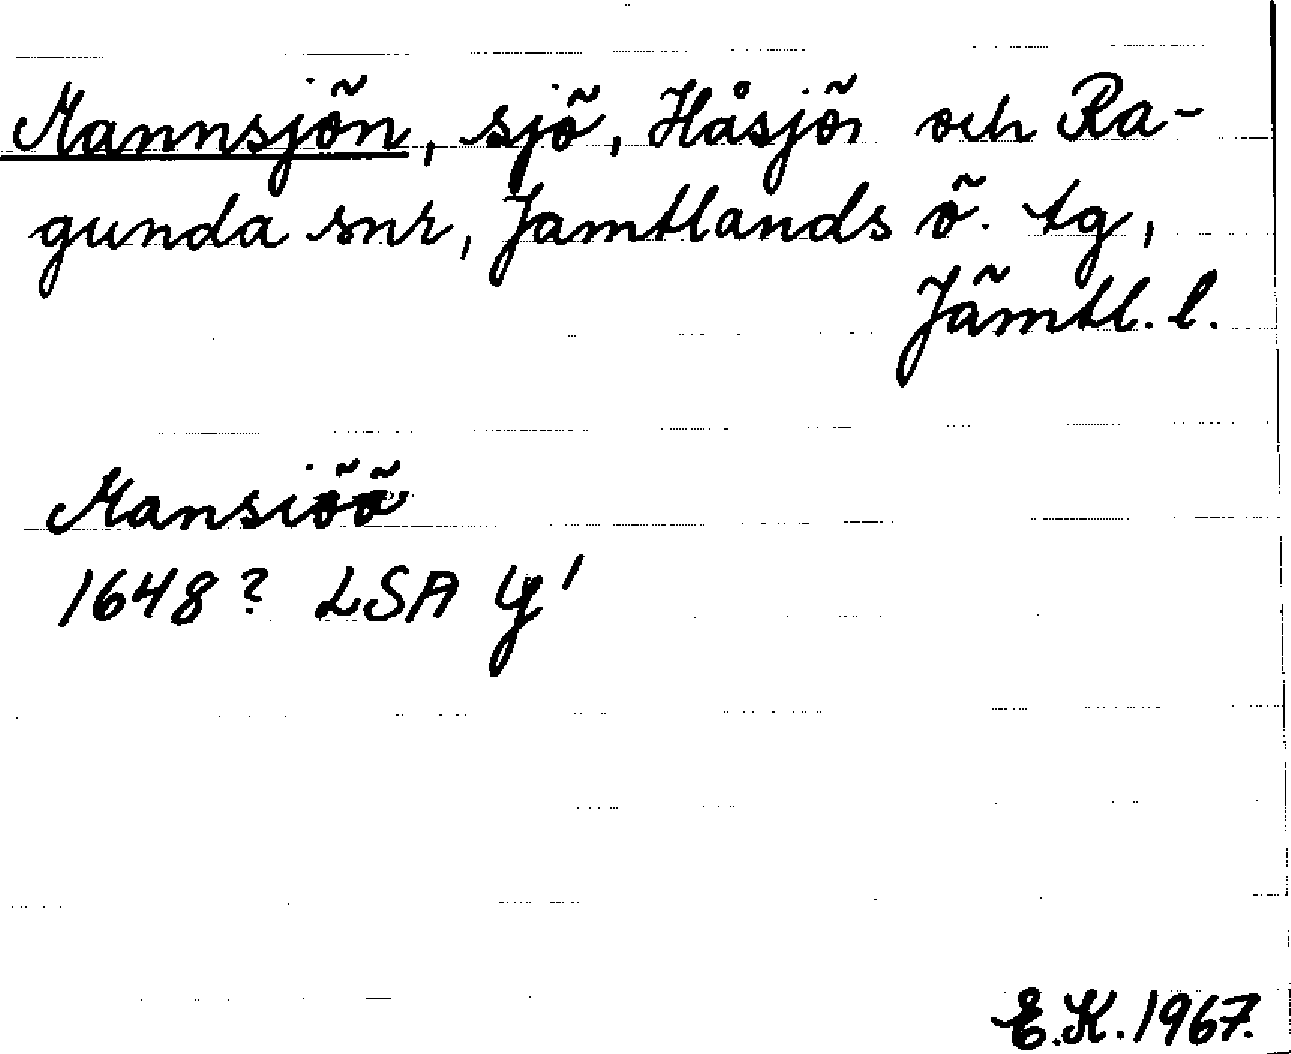 Mannsjön, sjö, Håsjö och Ra-
gunda snr, Jämtlands ö. tg,
Jämtl. l.
Mansiöö
1648? LSA Y 1
E.K. 1967.